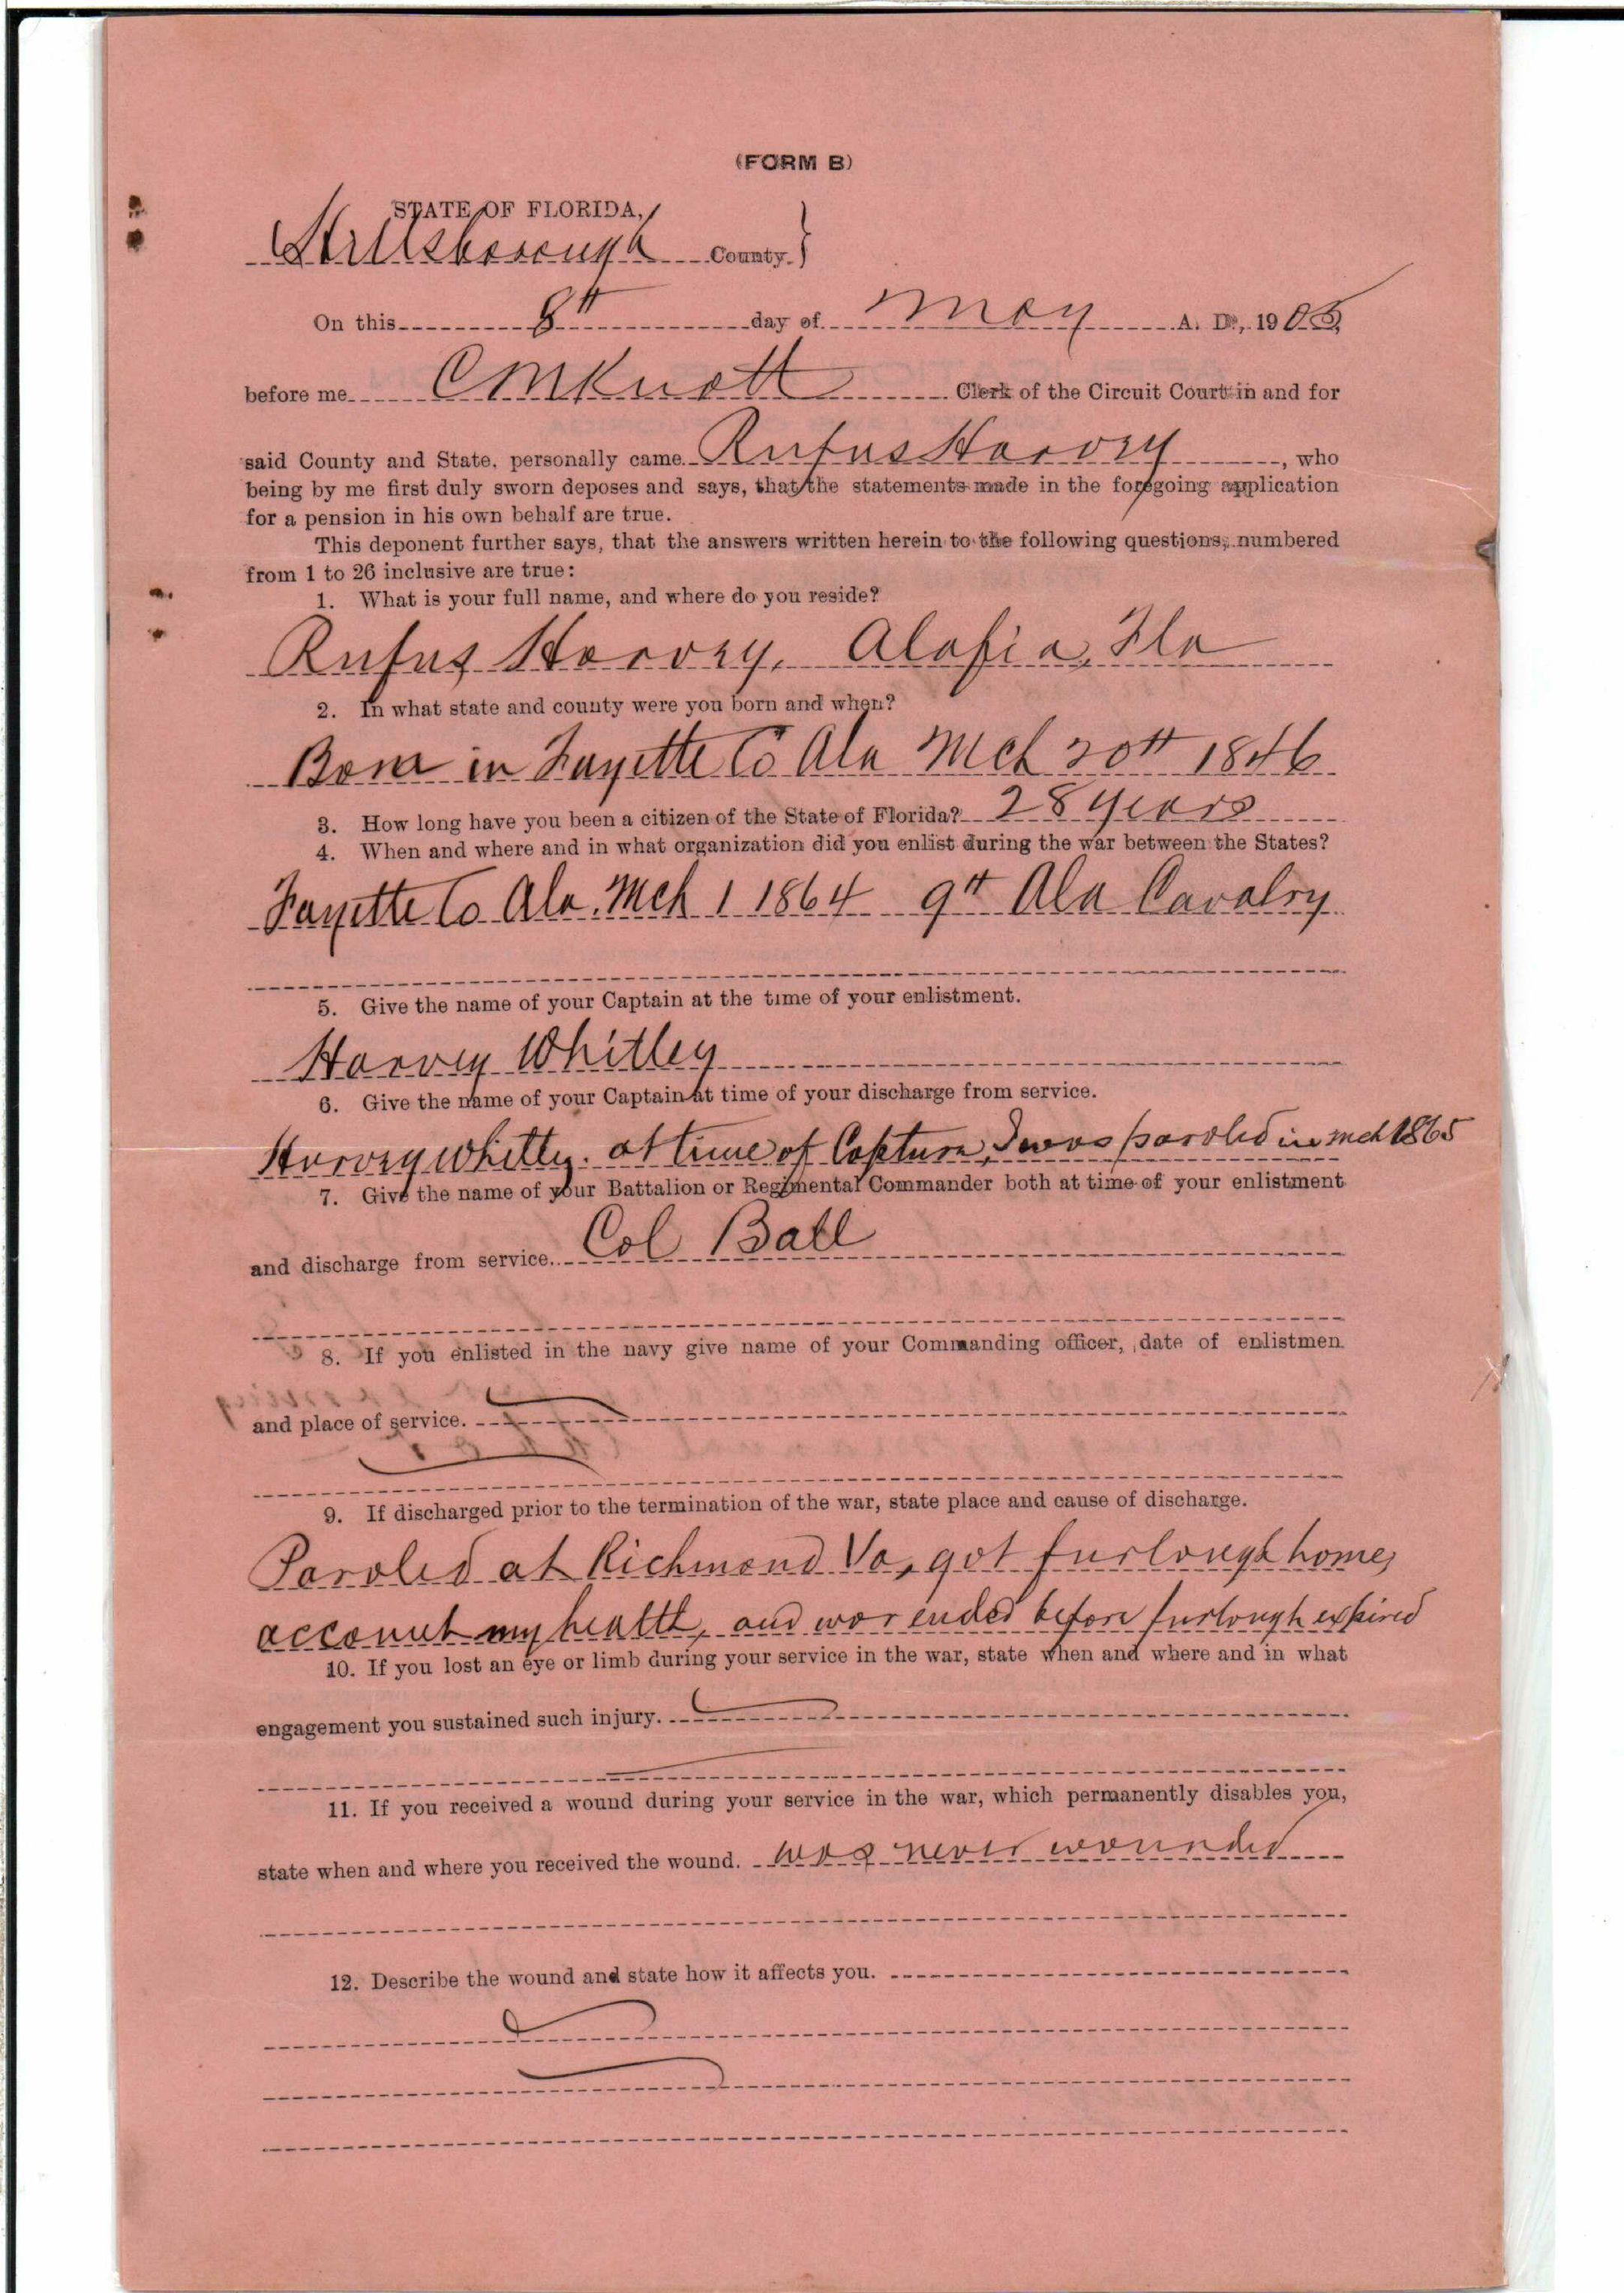 (FORM B)
STATE OF FLORIDA,
Hillsborough County.}
On this 8th day of May A. D., 1905,
before me C M Knott Clerk of the Circuit Court in and for
said County and State, personally came Rufus Harvey, who
being by me first duly sworn deposes and says, that the statements made in the foregoing application
for a pension in his own behalf are true.
This deponent further says, that the answers written herein to the following questions, numbered
from 1 to 26 inclusive are true:
1. What is your full name, and where do you reside?
Rufus Harvey, Alafia, Fla
2. In what state and county were you born and when?
Born in Fayette Co Ala Mch 20th 1846
3. How long have you been a citizen of the State of Florida? 28 years
4. When and where and in what organization did you enlist during the war between the States?
Fayette Co Ala. Mch 1 1864 9th Ala Cavalry
5. Give the name of your Captain at the time of your enlistment.
Harvey Whitley
6. Give the name of your Captain at time of your discharge from service.
Harvey Whitley. at time of Capture, I was paroled in Mch 1865
7. Give the name of your Battalion or Regimental Commander both at time of your enlistment
and discharge from service. Col Ball
8. If you enlisted in the navy give name of your Commanding officer, date of enlistmen
and place of service.
9. If discharged prior to the termination of the war, state place and cause of discharge.
Paroled at Richmond Va, got furlough home,
account my health, and war ended before furlough expired
10. If you lost an eye or limb during your service in the war, state when and where and in what
engagement you sustained such injury.
11. If you received a wound during your service in the war, which permanently disables you,
state when and where you received the wound. was never wounded
12. Describe the wound and state how it affects you.